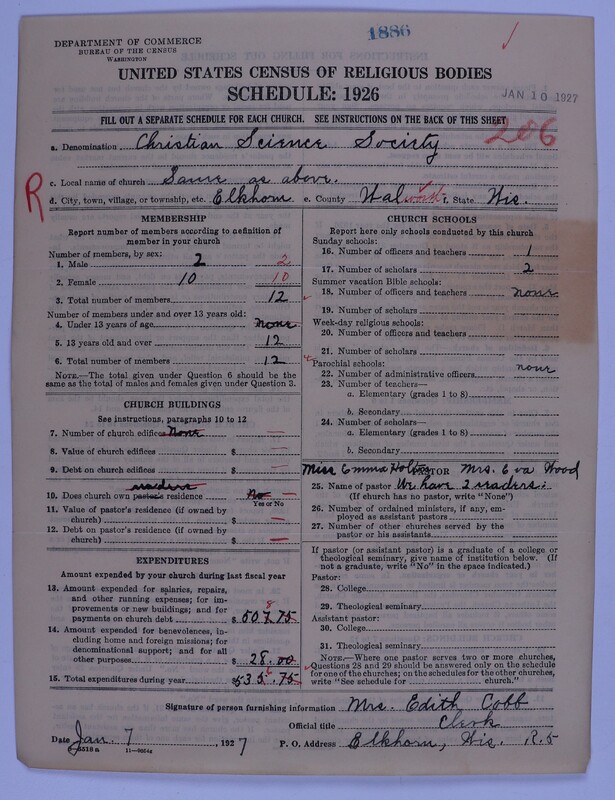 1886
DEPARTMENT OF COMMERCE
BUREAU OF THE CENSUS
WASHINGTON
UNITED STATES CENSUS OF RELIGIOUS BODIES
SCHEDULE: 1926
JAN 10 1927
FILL OUT A SEPARATE SCHEDULE FOR EACH CHURCH. SEE INSTRUCTIONS ON THE BACK OF THIS SHEET
206
a. Denomination Christian Science Society
c. Local name of church Same as above.
R
d. City, town, village, or township, etc. Elkhorn e. County Walworth f. State Wis.
MEMBERSHIP
Report number of members according to definition of member in your church
Number of members, by sex:
1. Male 2 2
2. Female 10 10
3. Total number of members 12
Number of members under and over 13 years old:
4. Under 13 years of age none
5. 13 years old and over 12
6. Total number of members 12
NOTE.—The total given under Question 6 should be the same as the total of males and females given under Question 3.
CHURCH BUILDINGS
See instructions, paragraphs 10 to 12
7. Number of church edifices None —
8. Value of church edifices $ —
9. Debt on church edifices $ —
readers
10. Does church own pastor's residence No —
Yes or No
11. Value of pastor's residence (if owned by church) $ —
12. Debt on pastor's residence (if owned by church) $ —
EXPENDITURES
Amount expended by your church during last fiscal year
13. Amount expended for salaries, repairs, and other running expenses; for improvements or new buildings; and for payments on church debt $ 507.75
8
14. Amount expended for benevolences, including home and foreign missions; for denominational support; and for all other purposes $ 28.00
15. Total expenditures during year $ 535.75
6
CHURCH SCHOOLS
Report here only schools conducted by this church
Sunday schools:
16. Number of officers and teachers 1
17. Number of scholars 2
Summer vacation Bible schools:
18. Number of officers and teachers none
19. Number of scholars
Week-day religious schools:
20. Number of officers and teachers
21. Number of scholars
Parochial schools:
22. Number of administrative officers none
23. Number of teachers—
a. Elementary (grades 1 to 8)
b. Secondary
24. Number of scholars—
a. Elementary (grades 1 to 8)
b. Secondary
Miss Emma Holton PASTOR Mrs. Eva Wood
25. Name of pastor We have 2 readers:
(If church has no pastor, write "None")
26. Number of ordained ministers, if any, employed as assistant pastors
27. Number of other churches served by the pastor or his assistants
If pastor (or assistant pastor) is a graduate of a college or theological seminary, give name of institution below. (If not a graduate, write "No" in the space indicated.)
Pastor:
28. College
29. Theological seminary
Assistant pastor:
30. College
31. Theological seminary
NOTE.—Where one pastor serves two or more churches, Questions 28 and 29 should be answered only on the schedule for one of the churches; on the schedules for the other churches, write "See schedule for church."
Signature of person furnishing information Mrs. Edith Cobb
Official title Clerk
Date Jan. 7, 1927 P. O. Address Elkhorn, Wis. R. 5